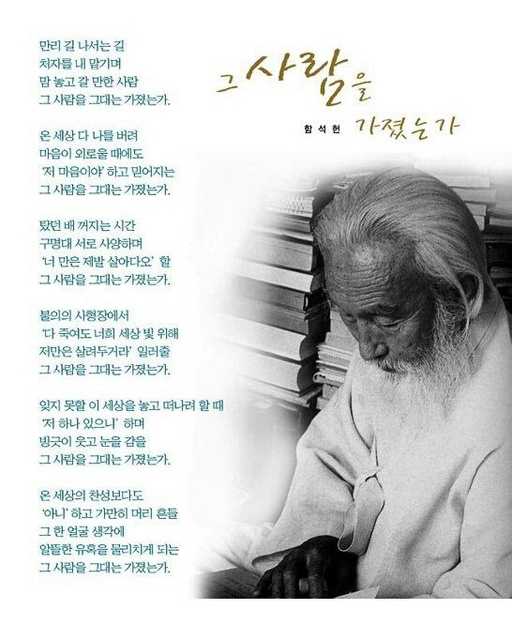 그 사람을
가졌는가
함석헌
만리 길 나서는 길
처자를 내 맡기며
맘 놓고 갈 만한 사람
그 사람을 그대는 가졌는가.
온 세상 다 나를 버려
마음이 외로울 때에도
‘저 마음이야’ 하고 믿어지는
그 사람을 그대는 가졌는가.
탔던 배 꺼지는 시간
구명대 서로 사양하며
‘너 만은 제발 살아다오’ 할
그 사람을 그대는 가졌는가.
불의의 사형장에서
‘다 죽여도 너희 세상 빛 위해
저만은 살려두거라’ 일러줄
그 사람을 그대는 가졌는가.
잊지 못할 이 세상을 놓고 떠나려 할 때
‘저 하나 있으니’ 하며
빙긋이 웃고 눈을 감을
그 사람을 그대는 가졌는가.
온 세상의 찬성보다도
‘아니’ 하고 가만히 머리 흔들
그 한 얼굴 생각에
알뜰한 유혹을 물리치게 되는
그 사람을 그대는 가졌는가.